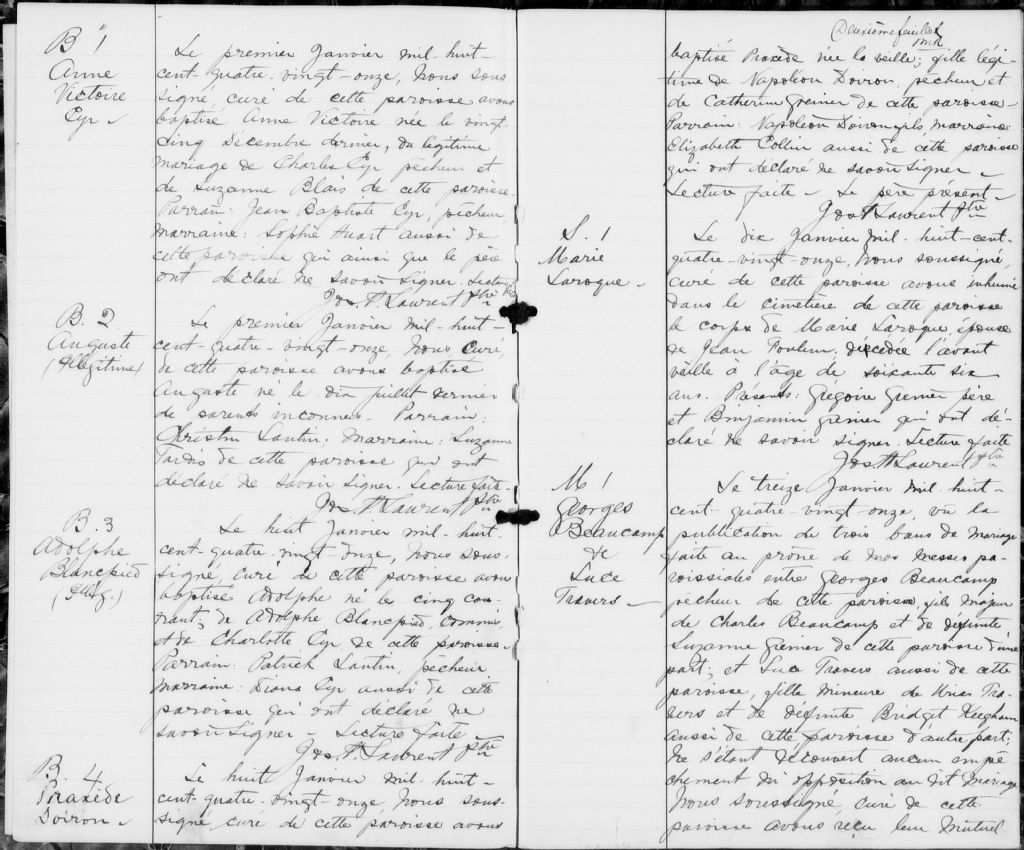 B 1
Anne
Victoire
Cyr
Le premier Janvier mil-huit-
cent-quatre-vingt-onze, Nous sous
signé, curé de cette paroisse avons
baptisé Anne Victoire née le vingt-
cinq Décembre dernier, du légitime
mariage de Charles Cyr pêcheur et
de Suzanne Blais de cette paroisse
Parrain: Jean Baptiste Cyr, pêcheur,
Marraine: Sophie Huart aussi de
cette paroisse qui ainsi que le père
ont déclaré ne savoir signer. Lecture
Jos. A Laurent Ptre
B. 2
Auguste
(Illégitime)
Le premier Janvier mil-huit-
cent-quatre-vingt-onze, Nous, Curé
de cette paroisse avons baptisé
Auguste né le dix Juillet dernier
de parents inconnus. Parrain:
Christin Lantin. Marraine: Suzanne
Tardis de cette paroisse qui ont
déclaré ne savoir signer. Lecture faite.
Jos A Laurent Ptre
B. 3
Adolphe
Blancpied
(Illég.)
Le huit Janvier mil-huit-
cent-quatre-vingt-onze, Nous sous-
signé, curé de cette paroisse avons
baptisé Adolphe né le cinq cou-
rant, de Adolphe Blancpied, commis,
et de Charlotte Cyr de cette paroisse
Parrain: Patrick Lantin, pêcheur
Marraine: Diana Cyr aussi de cette
paroisse qui ont déclaré ne
savoir signer - Lecture faite -
Jos. A. Laurent Ptre
B. 4
Praxède
Doiron
Le huit Janvier mil-huit-
cent-quatre-vingt-onze, Nous sous-
signé, curé de cette paroisse avons
Deuxième feuillet
baptisé Praxède née la veille; fille légi-
time de Napoléon Doiron, pêcheur et
de Catherine Grenier de cette paroisse -
Parrain: Napoléon Doiron fils, marraine:
Elizabeth Collin aussi de cette paroisse
qui ont déclaré ne savoir signer -
Lecture faite - Le père présent -
Jos A Laurent Ptre
S. 1
Marie
Laroque -
Le dix Janvier mil-huit-cent-
quatre-vingt-onze, Nous soussigné,
curé de cette paroisse avons inhumé
dans le cimetière de cette paroisse
le corps de Marie Laroque, épouse
de Jean Foulem, décédée l'avant
veille à l'âge de soixante six
ans. Présents: Grégoire Grenier père
et Benjamin Grenier qui ont dé-
claré ne savoir signer. Lecture faite
Jos A Laurent Ptre
M 1
Georges
Beaucamp
&
Luce
Travers -
Le treize Janvier mil-huit-
cent-quatre-vingt-onze, vu la
publication de trois bans de mariage
faite au prône de nos messes pa-
roissiales entre Georges Beaucamp
pêcheur de cette paroisse, fils majeur
de Charles Beaucamp et de défunte
Suzanne Grenier de cette paroisse d'une
part; et Luce Travers aussi de cette
paroisse, fille mineure de Tra-
vers et de défunte Bridget Keeghan
aussi de cette paroisse d'autre part;
Ne s'étant découvert aucun empê
chement ni opposition au dit mariage
Nous soussigné, curé de cette
paroisse avons reçu leur mutuel